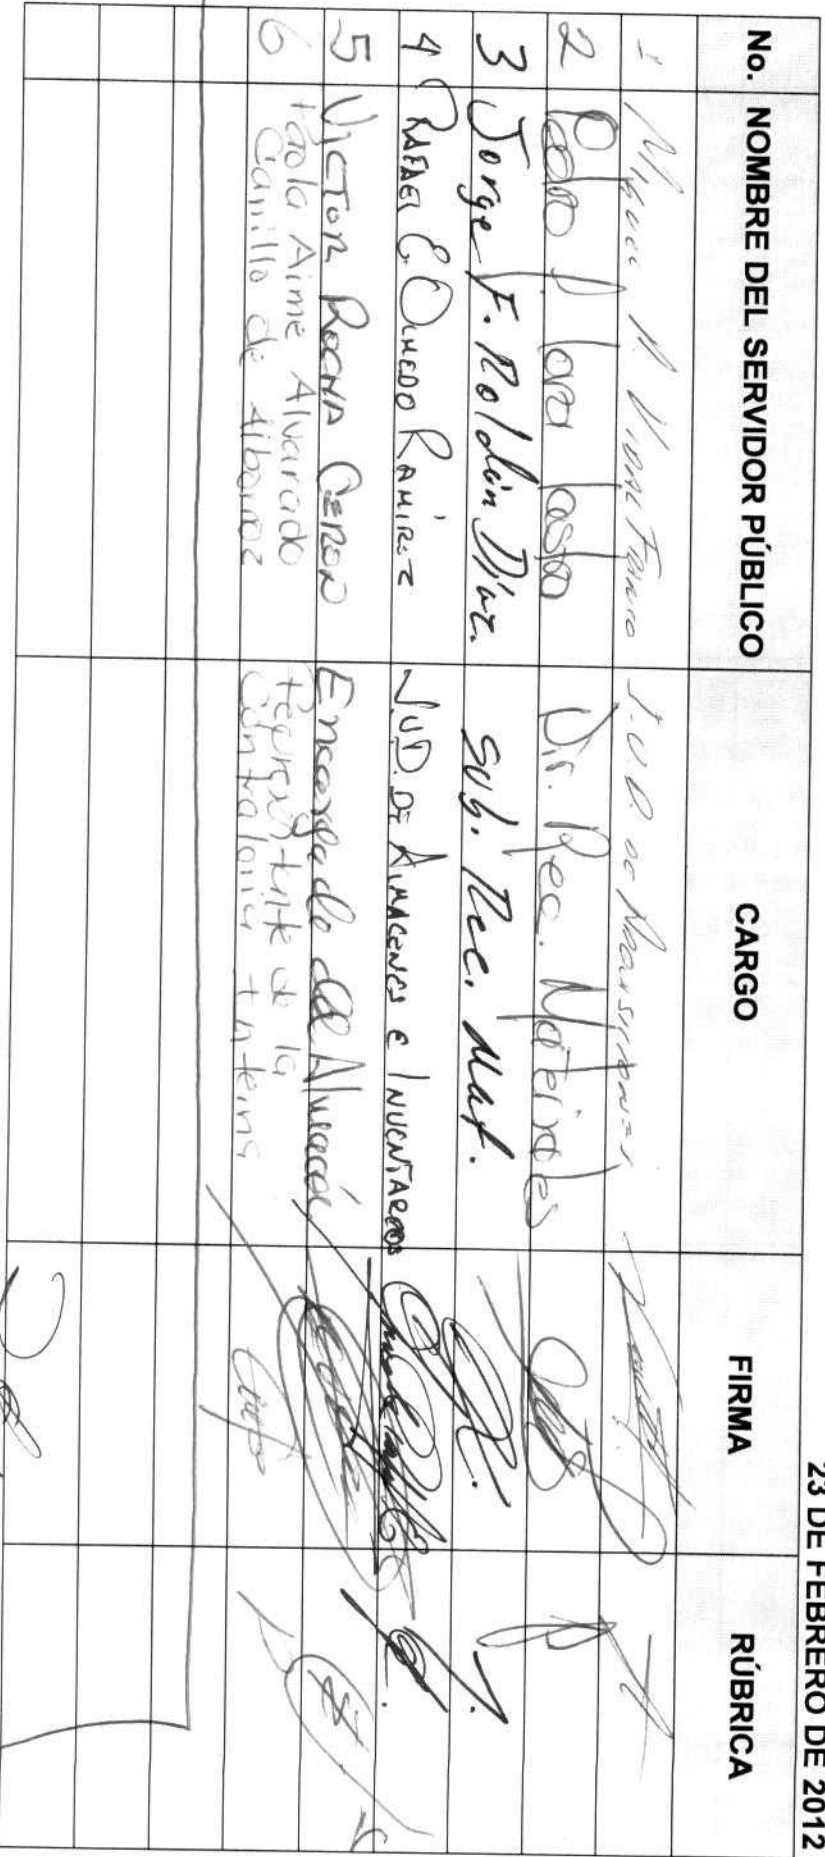 23 DE FEBRERO DE 2012
No. NOMBRE DEL SERVIDOR PÚBLICO CARGO FIRMA RÚBRICA
1 Miguel A. Vidal J.U.D. de Adquisiciones
2 Pedro P. Lara Castro Dir. Rec. Materiales
3 Jorge F. Roldán Díaz. Sub. Rec. Mat.
4 RAFAEL E OLMEDO RAMÍREZ J.U.D. DE ALMACENES E INVENTARIOS
5 VICTOR ROCHA CERON Encargado de Almacén
6 Paola Aime Alvarado
Carrillo de Albornoz
de la
Contraloría Interna